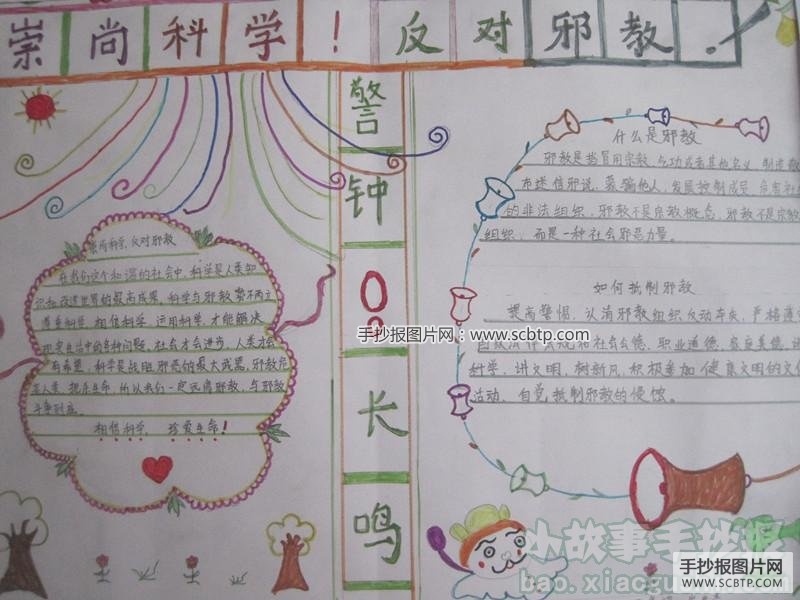 崇尚科学！反对邪教.
警钟长鸣
崇尚科学,反对邪教
在我们这个和谐的社会中,科学是人类知
识和改造世界的最高成果,科学与邪教势不两立
尊重科学,相信科学,运用科学,才能解决
现实生活中的各种问题,社会才会进步,人类才会
有希望,科学是战胜邪恶的最大武器,邪教危
害人类,把杀生命,所以我们一定远离邪教,与邪教
斗争到底。
相信科学,珍爱生命!
什么是邪教
邪教是指冒用宗教,气功或者其他名义,制造散
布迷信邪说,蒙骗他人,发展控制成员,危害社
的非法组织,邪教不是宗教概念,邪教不是宗教
组织,而是一种社会邪恶力量。
如何抵制邪教
提高警惕,认清邪教组织反动本质,严格遵
法规和社会公德、职业道德、家庭美德,
科学,讲文明,树新风,积极参加健康文明的文化
活动,自觉抵制邪教的侵蚀。
手抄报图片网:www.scbtp.com
手抄报图片网:www.scbtp.com
小故事手抄报
bao.xiaogu
手抄报图片网
WWW.SCBTP.COM